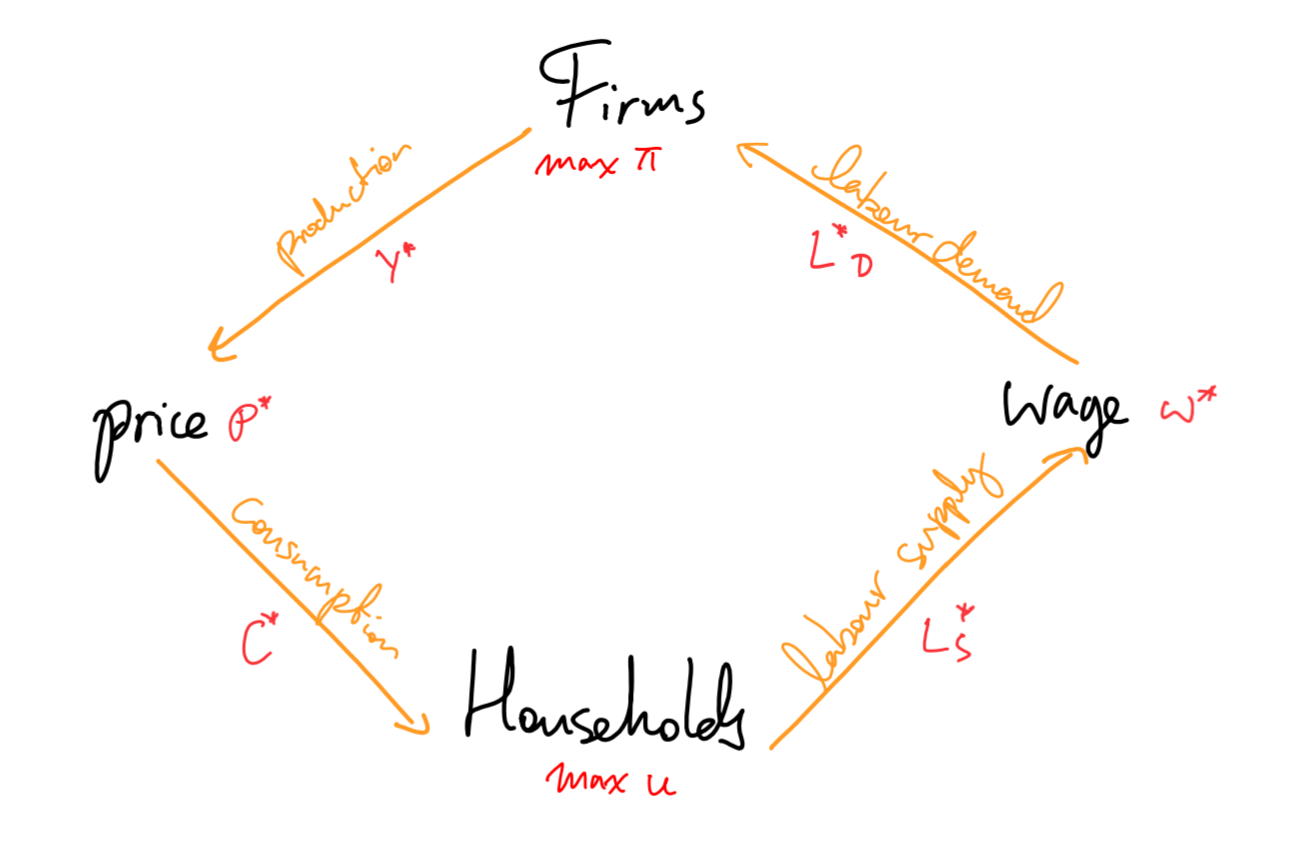 Firms
max π
production
Y*
labour demand
L*D
price P*
wage w*
Consumption
C*
labour supply
L*S
Households
max u